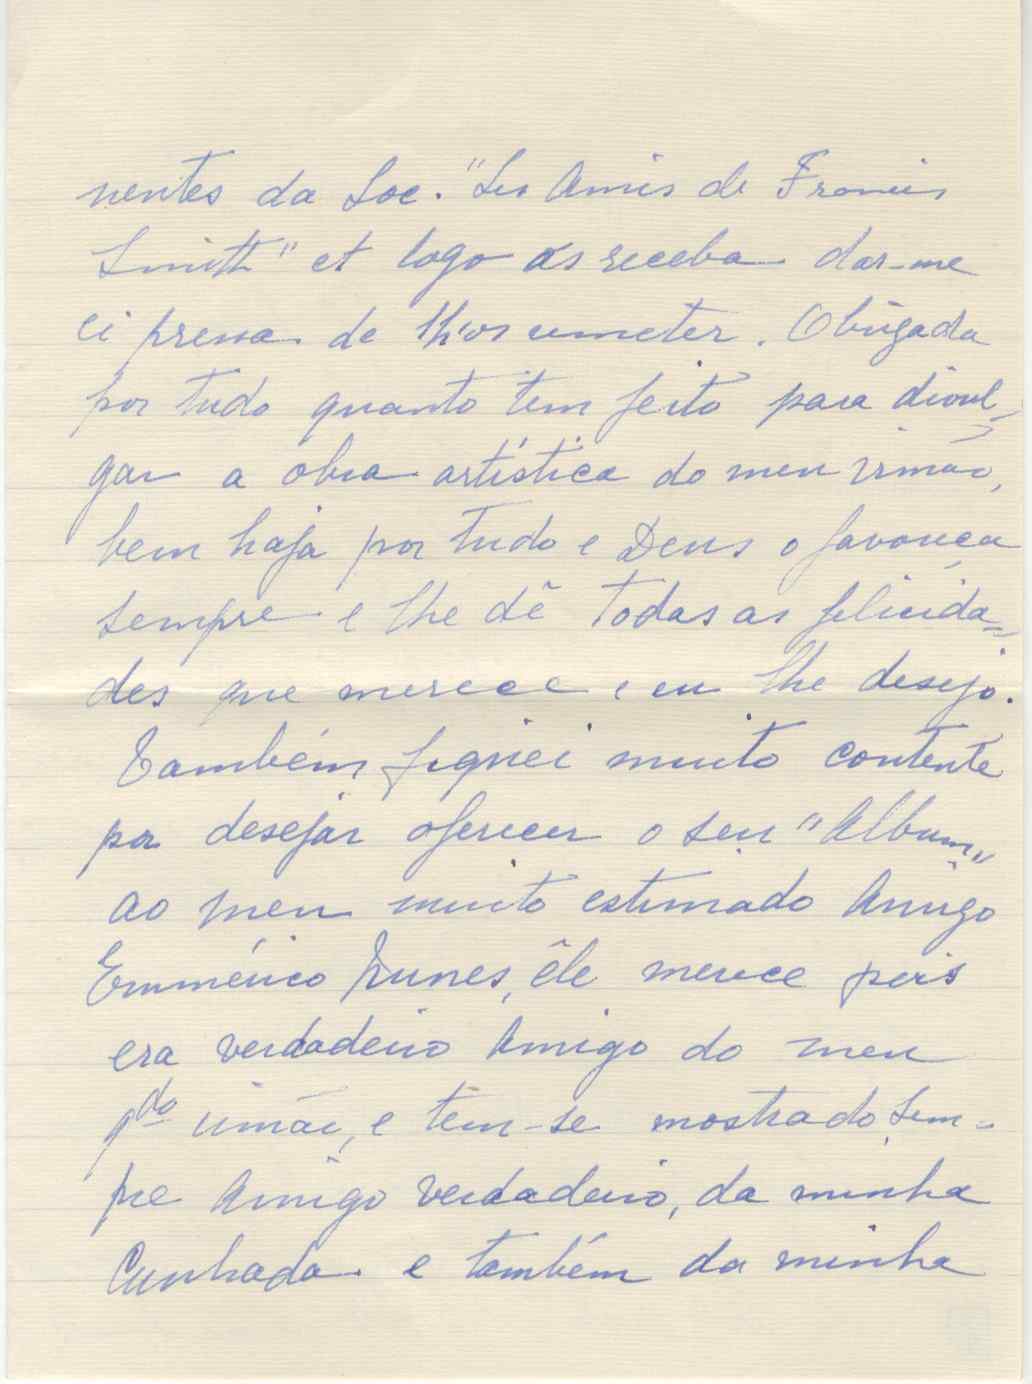 nentes da Soc. "Les Amis de Francis
Smith" et logo as receba dar-me
ei pressa de lh'os remeter. Obrigada
por tudo quanto tem feito para divul-
gar a obra artística do meu irmão,
bem haja por tudo e Deus o favoreça
sempre e lhe dê todas as felicida=
des que merece e eu lhe desejo.
Também fiquei muito contente
por desejar oferecer o seu "Album"
ao meu muito estimado Amigo
Emmérico Nunes, êle merece pois
era verdadeiro Amigo do meu
qdo irmão, e têm-se mostrado sem-
pre Amigo verdadeiro, da minha
Cunhada e também da minha